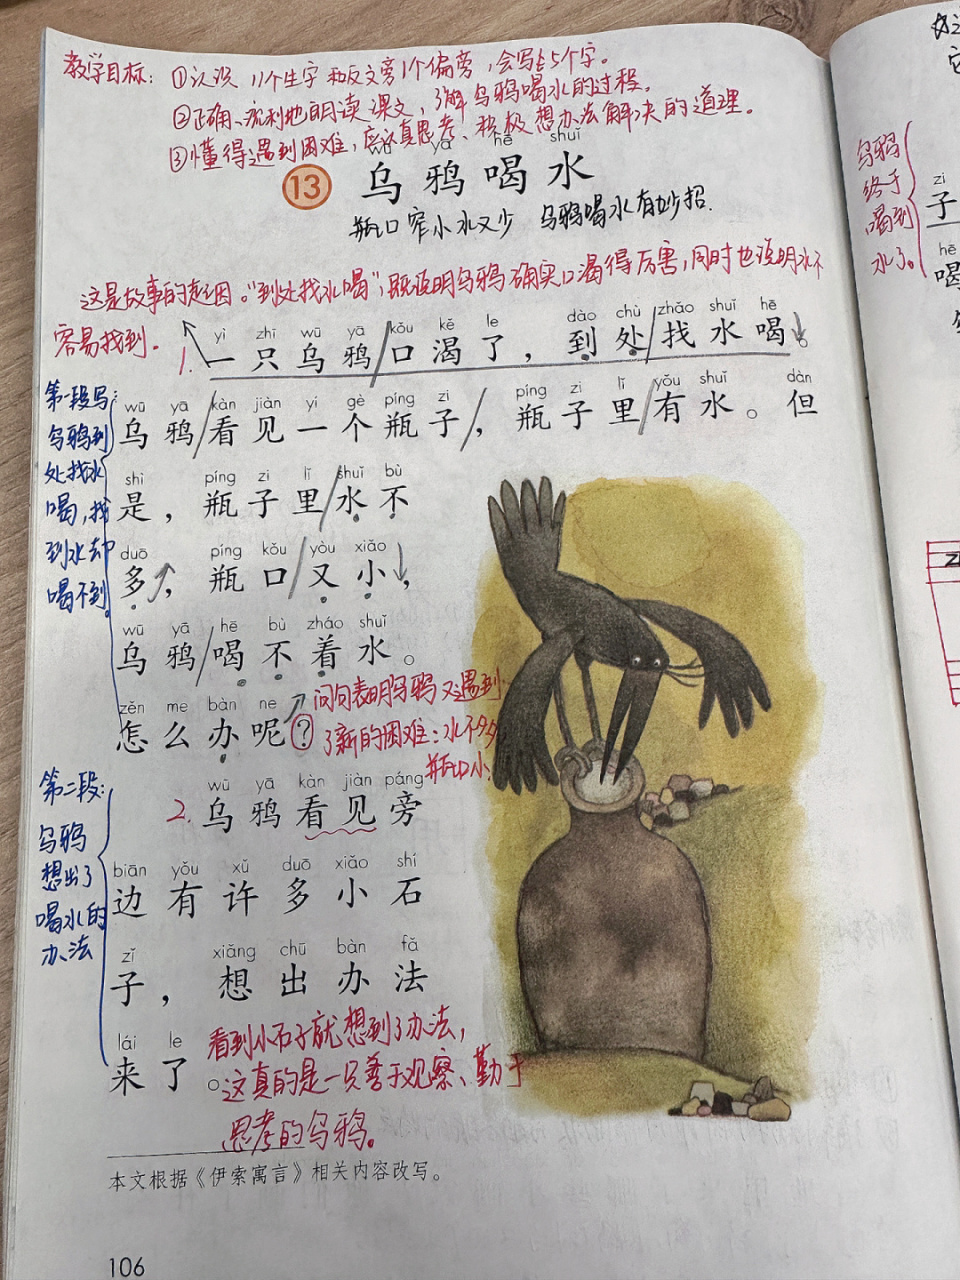 教学目标：①认识 11个生字和反文旁1个偏旁，会写5个字。
②正确、流利地朗读课文，了解乌鸦喝水的过程。
③懂得遇到困难，应认真思考、积极想办法解决的道理。
wū yā hē shuǐ
13 乌鸦喝水
瓶口窄小水又少 乌鸦喝水有妙招.
这是故事的起因。"到处找水喝"，既说明乌鸦确实口渴得厉害，同时也说明水不
容易找到。
yì zhī wū yā kǒu kě le dào chù zhǎo shuǐ hē
1. 一只乌鸦口渴了，到处找水喝。
wū yā kàn jiàn yí gè píng zi píng zi lǐ yǒu shuǐ dàn
乌鸦看见一个瓶子，瓶子里有水。但
shì píng zi lǐ shuǐ bù
是，瓶子里水不
duō píng kǒu yòu xiǎo
多，瓶口又小，
wū yā hē bù zháo shuǐ
乌鸦喝不着水。
zěn me bàn ne
怎么办呢？
第一段写：
乌鸦到
处找水
喝，找
到水却
喝不到。
问句表明乌鸦又遇到
了新的困难：水不多
瓶口小
wū yā kàn jiàn páng
2. 乌鸦看见旁
biān yǒu xǔ duō xiǎo shí
边有许多小石
zǐ xiǎng chū bàn fǎ
子，想出办法
lái le
来了。
第二段：
乌鸦
想出了
喝水的
办法
看到小石子就想到了办法，
这真的是一只善于观察、勤于
思考的乌鸦。
本文根据《伊索寓言》相关内容改写。
106
乌鸦
终于
喝到
水了。
zi
子
hē
喝